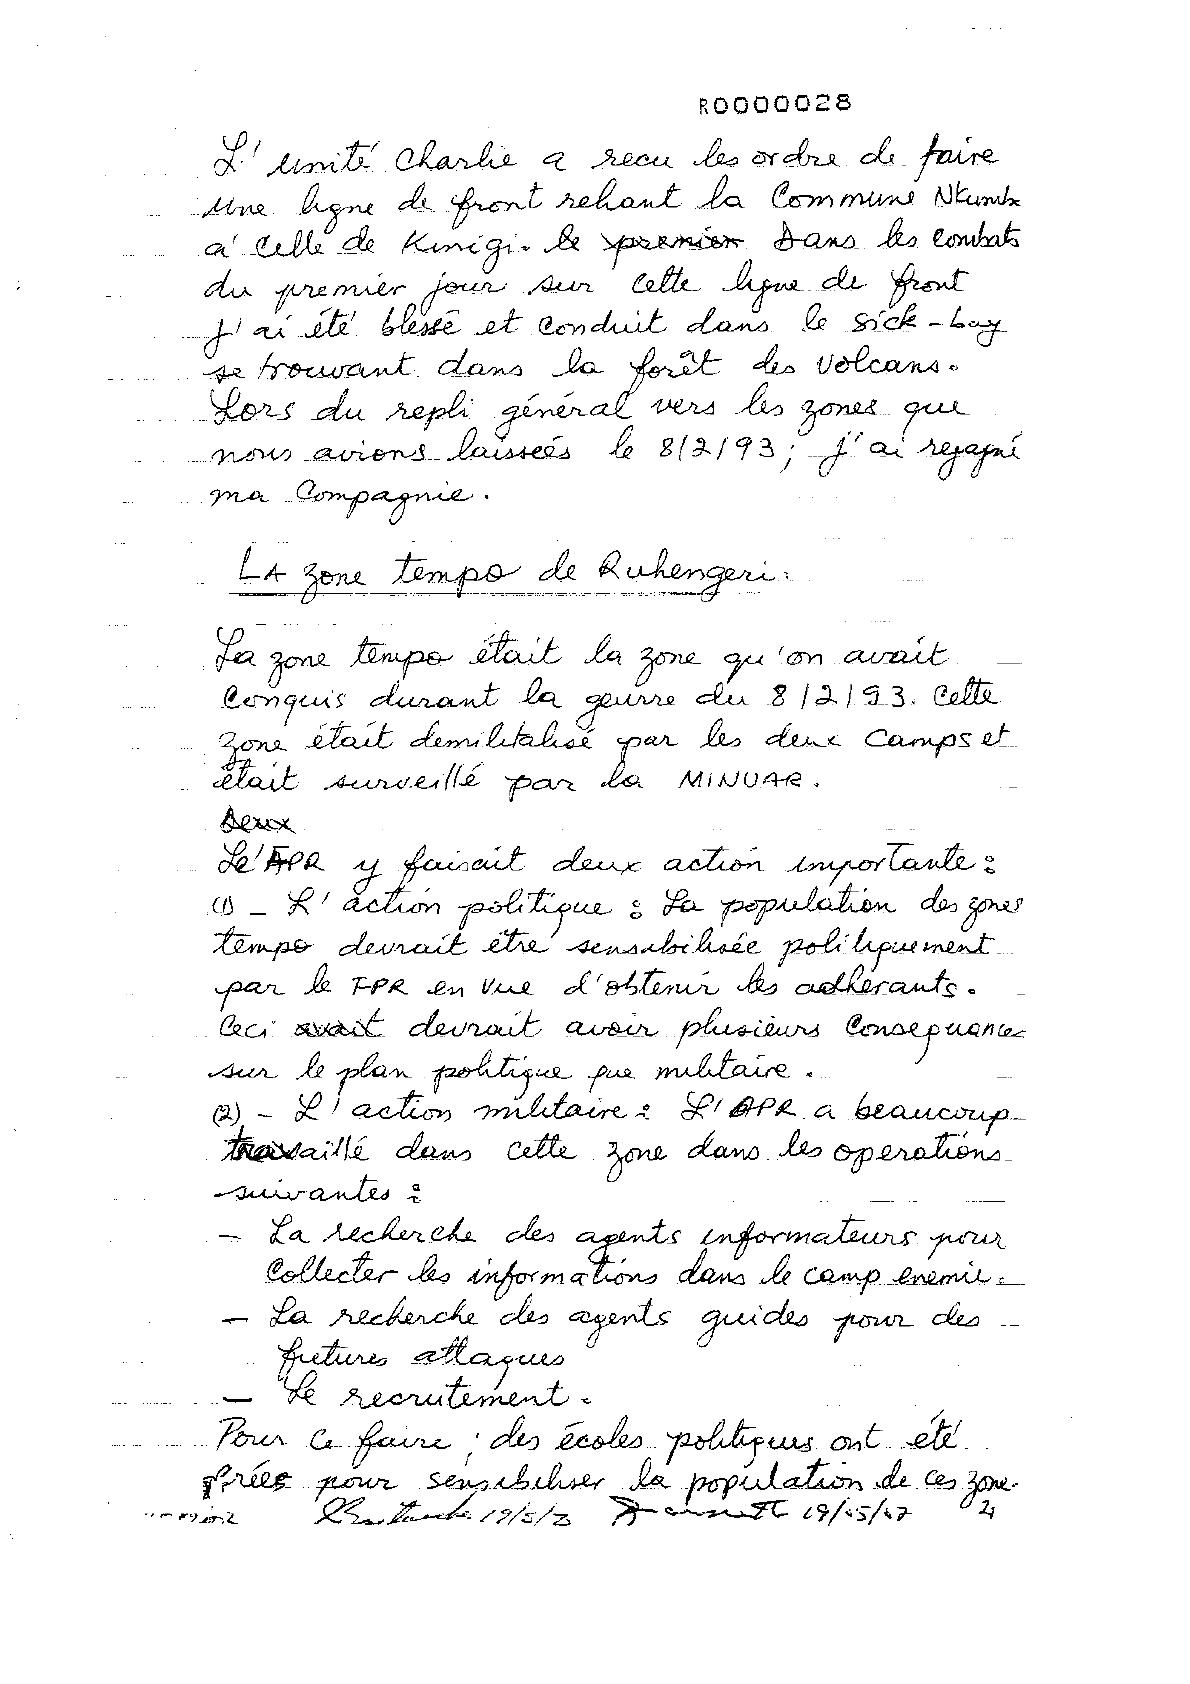 R0000028
L'unité Charlie a recu les ordre de faire
une ligne de front reliant la Commune Nkumba
à celle de Kinigi. le premier Dans les combats
du premier jour sur cette ligne de front
j'ai été blessé et conduit dans le sick-bay
se trouvant dans la forêt des volcans.
Lors du repli général vers les zones que
nous avions laissées le 8/2/93; j'ai regagné
ma compagnie.
LA zone tempo de Ruhengeri.
La zone tempo était la zone qu'on avait
conquis durant la geurre du 8/2/93. Cette
zone était demilitalisé par les deux camps et
était surveillé par la MINUAR.
Deux
Le'APR y faisait deux action importante :
(1) - L'action politique : La population des zones
tempo devrait être sensibilisée politiquement
par le FPR en vue d'obtenir les adhérants.
Ceci avait devrait avoir plusieurs consequances
sur le plan politique que militaire.
(2) - L'action militaire : L'APR a beaucoup
travaillé dans cette zone dans les operations
suivantes :
- La recherche des agents informateurs pour
collecter les informations dans le camp enemie.
- La recherche des agents guides pour des
futures attaques
- Le recrutement.
Pour ce faire, des écoles politiques ont été
créés pour sensibiliser la population de ces zone.
19/5/3 19/05/07 24